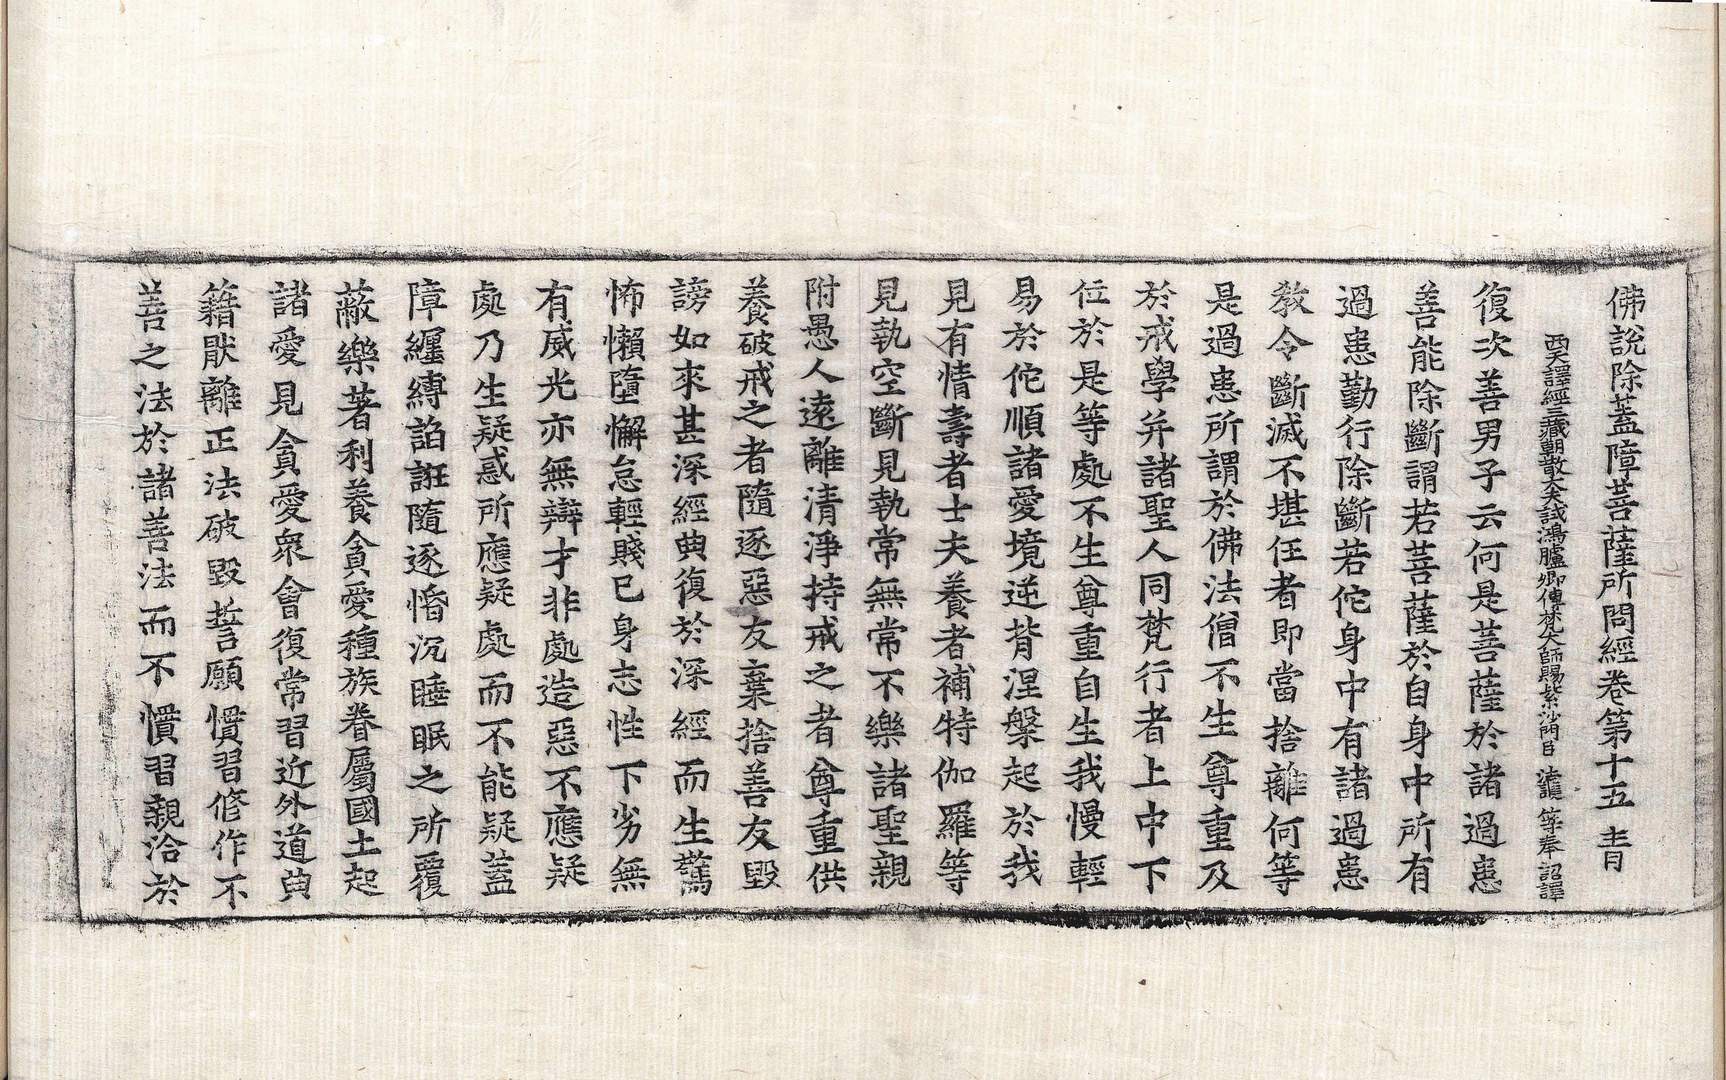 佛說除蓋障菩薩所問經卷第十五
西天譯經三藏朝散大夫試鴻臚卿傳梵大師賜紫沙門臣 法護 等奉 詔譯
復次善男子云何是菩薩於諸過患
善能除斷謂若菩薩於自身中所有
過患勤行除斷若佗身中有諸過患
教令斷滅不堪任者即當捨離何等
是過患所謂於佛法僧不生尊重及
於戒學并諸聖人同梵行者上中下
位於是等處不生尊重自生我慢輕
易於佗順諸愛境逆背涅槃起於我
見有情壽者士夫養者補特伽羅等
見執空斷見執常無常不樂諸聖親
附愚人遠離清淨持戒之者尊重供
養破戒之者隨逐惡友棄捨善友毀
謗如來甚深經典復於深經而生驚
怖懶墮懈怠輕賤己身志性下劣無
有威光亦無辯才非處造惡不應疑
處乃生疑惑所應疑處而不能疑蓋
障纏縛諂誑隨逐惛沉睡眠之所覆
蔽樂著利養貪愛種族眷屬國土起
諸愛見貪愛眾會復常習近外道典
籍猒離正法破毀誓願慣習修作不
善之法於諸善法而不慣習親洽於